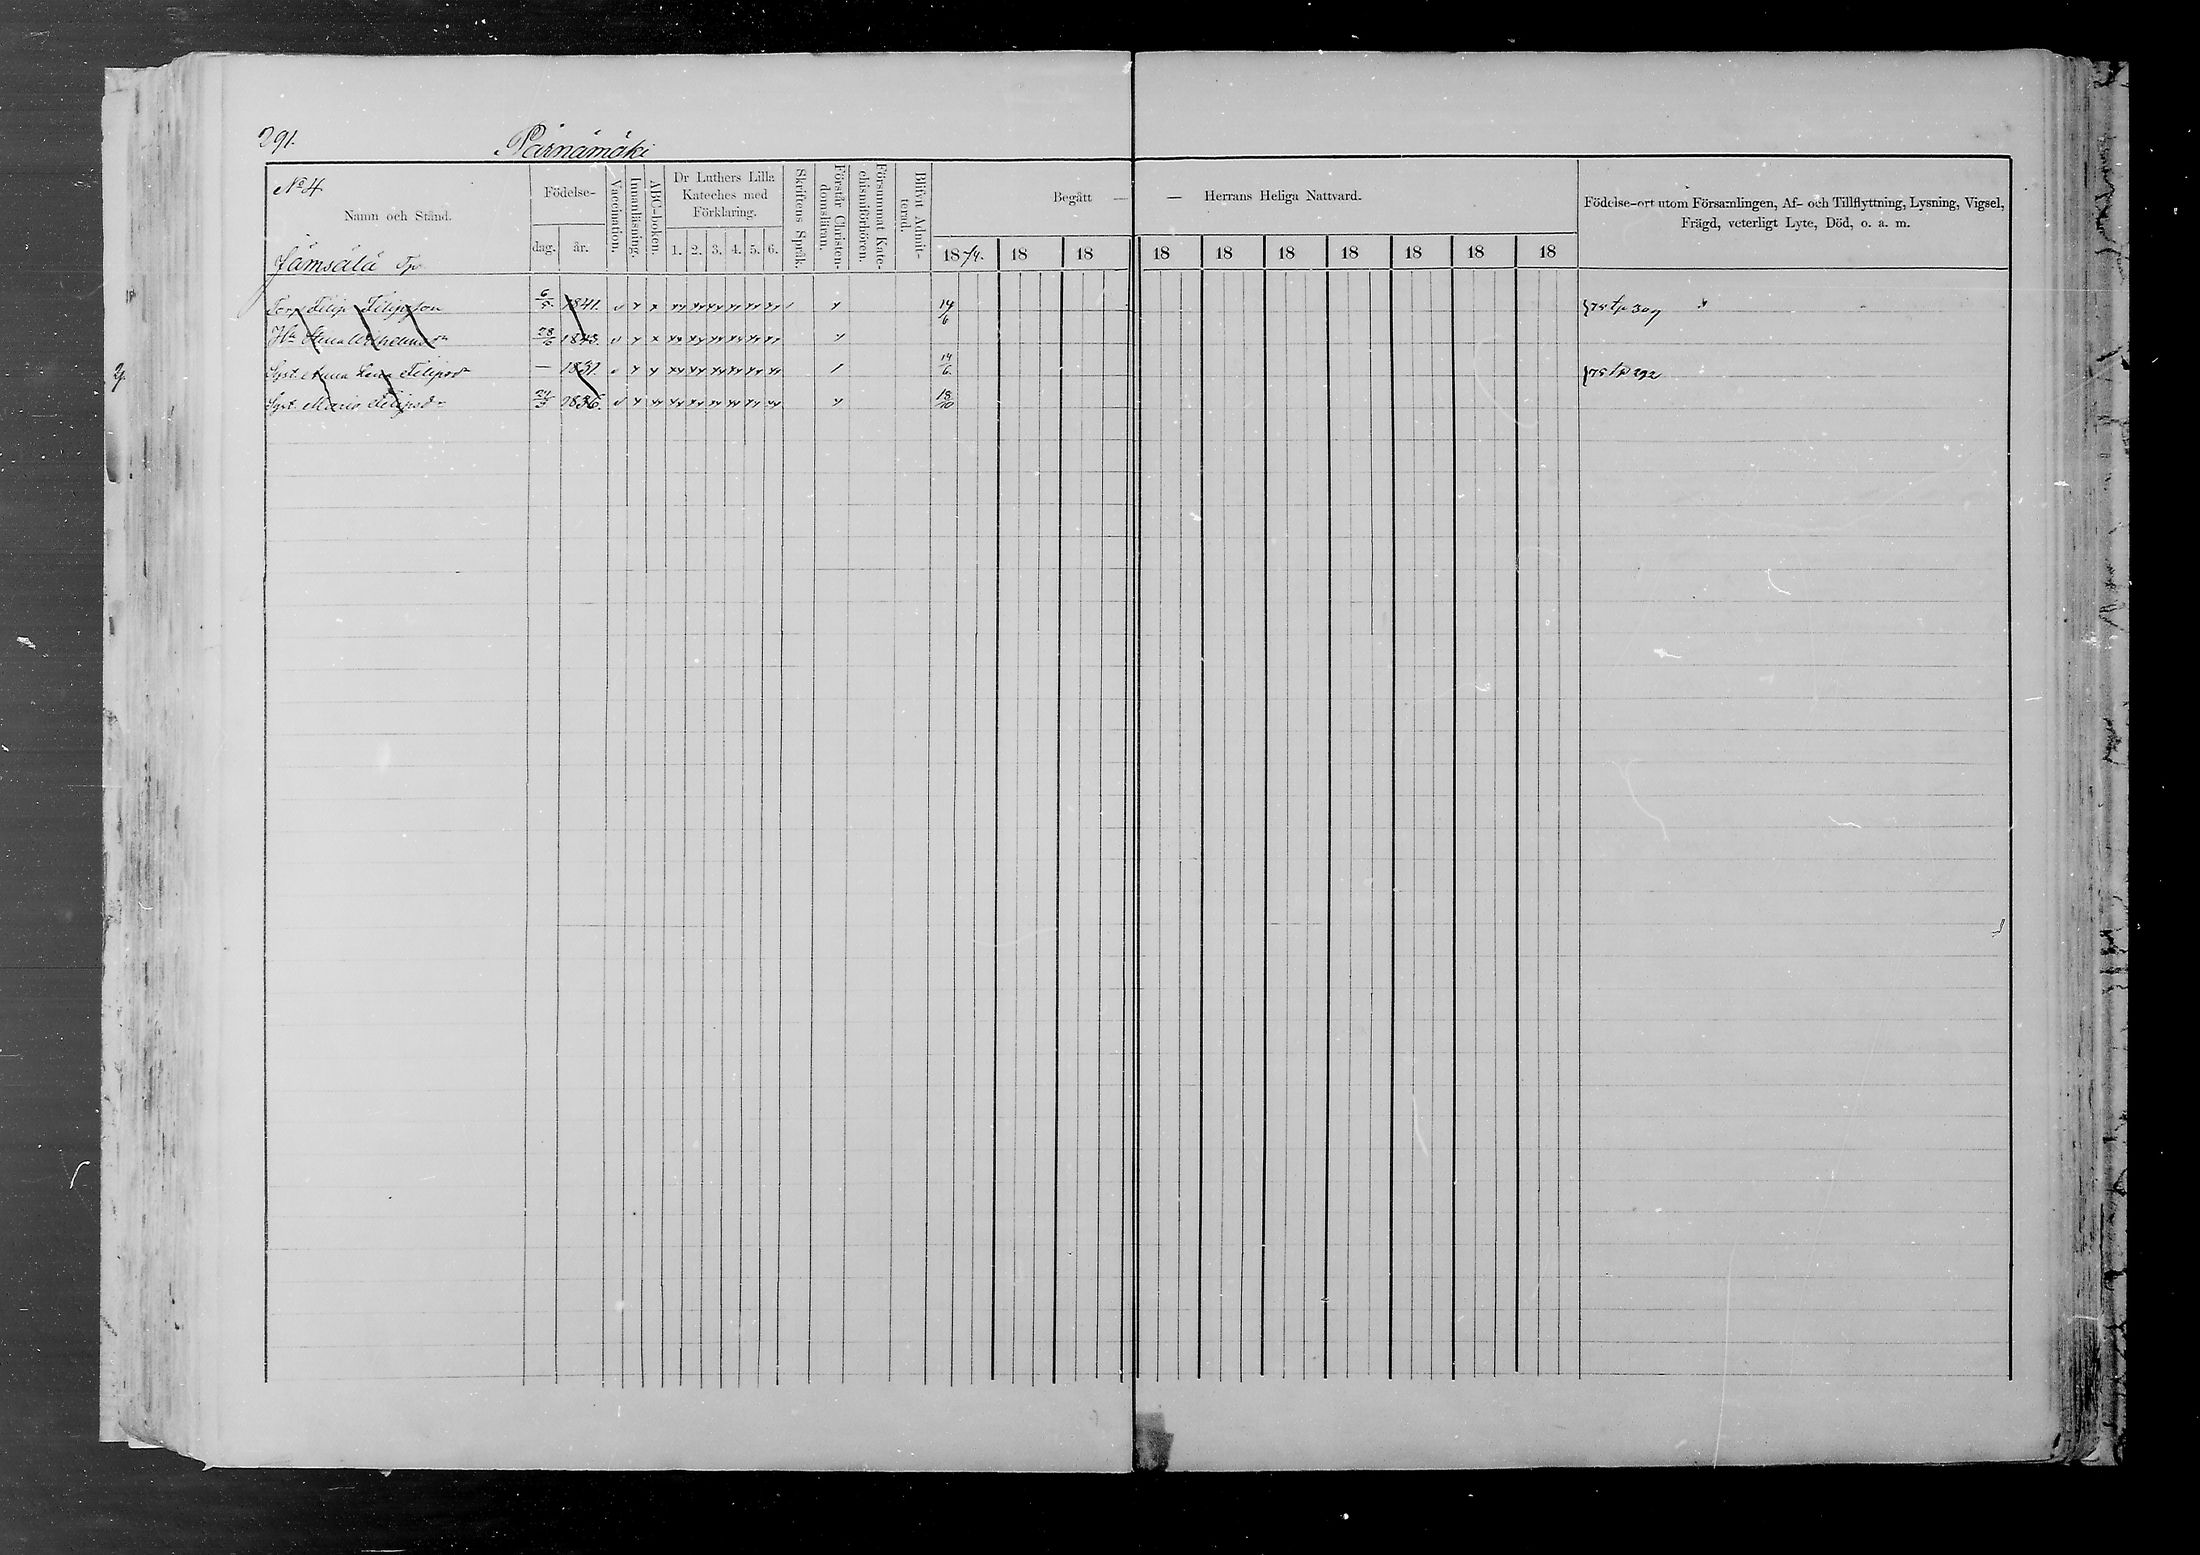 291.
Pärnämäki
No 4
Namn och Stånd.
Födelse-
dag. år.
Vaccination.
Innanläsning.
ABC-boken.
Dr Luthers Lilla Kateches med Förklaring.
1. 2. 3. 4. 5. 6.
Skriftens Språk.
Förstår Christendomsläran.
Försummat Katechismiförhören.
Blifvit Admitterad.
Begått — — Herrans Heliga Nattvard.
1874. 18 18 18 18 18 18 18 18 18
Födelse-ort utom Församlingen, Af- och Tillflyttning, Lysning, Vigsel,
Frägd, veterligt Lyte, Död, o. a. m.
Jämsälä
Torp Filip Filipsson 6/5. 1841. 14/6 75 tp 309
Hu 1843.
Syst. Anna Lena Filipsdr — 1831. 14/6. 75 tp 292
Syst. Maria Filipsdr 24/3 1836. 18/10